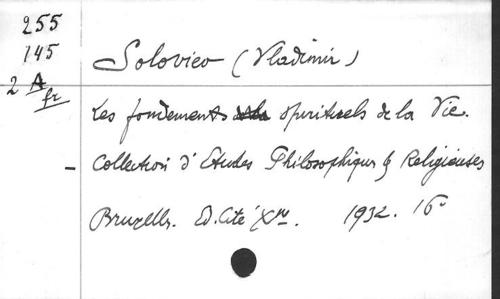 255
145
2 A fr
Soloviev (Vladimir)
Les fondements spirituels de la Vie.
Collection d'Etudes Philosophiques & Religieuses
Bruxelles. Ed. Cité Xne. 1932. 16º